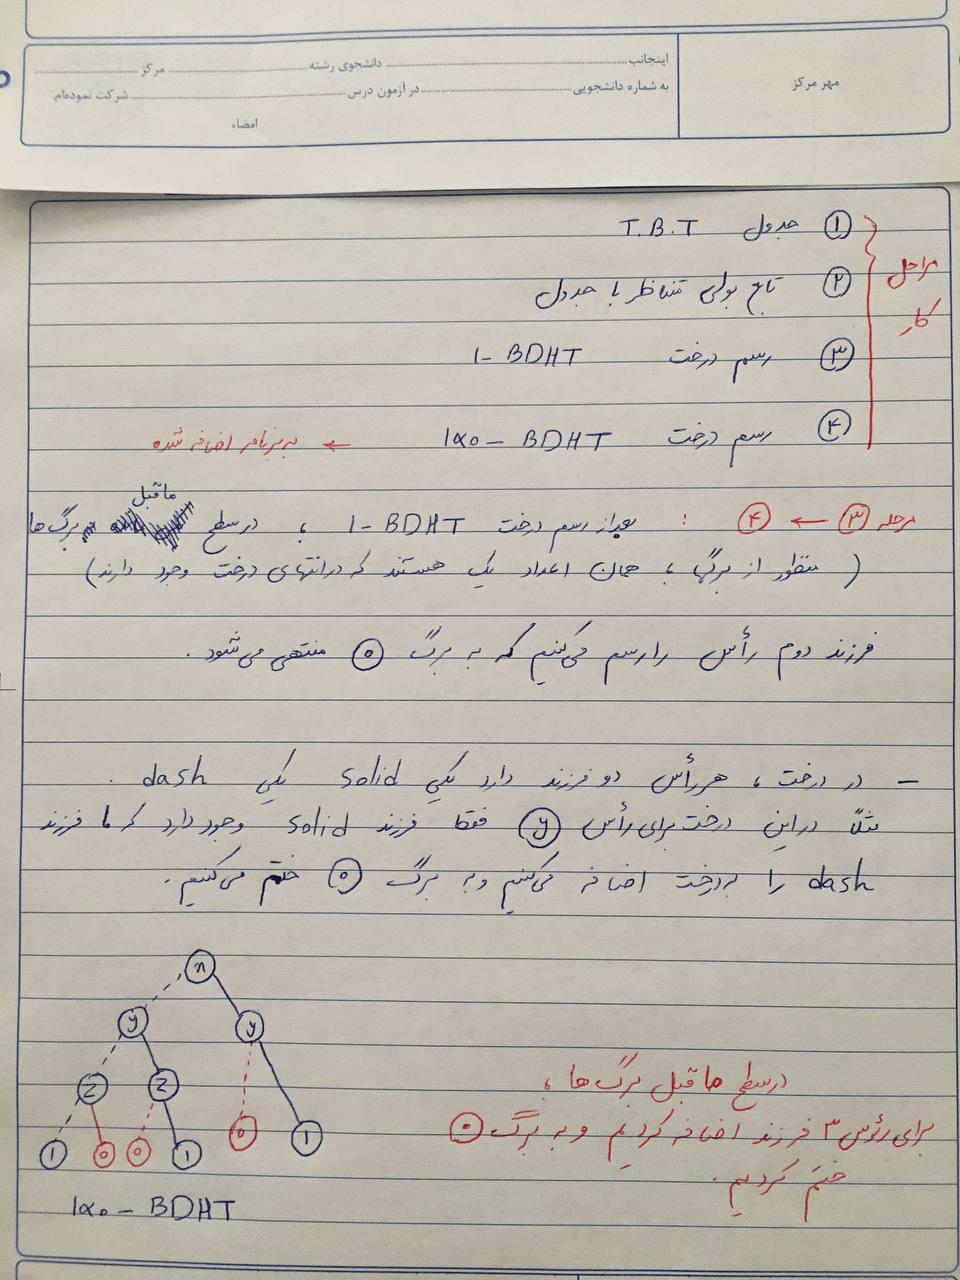 اینجانب دانشجوی رشته مرکز
به شماره دانشجویی در آزمون درس شرکت نموده‌ام.
امضاء
مهر مرکز
مراحل کار
۱ جدول T.B.T
۲ تابع بولی متناظر با جدول
۳ رسم درخت 1-BDHT
۴ رسم درخت 1α0-BDHT ← به برنامه اضافه شده
مرحله ۳ ← ۴ : بعد از رسم درخت 1-BDHT ، در سطح ماقبل برگ ها
( منظور از برگها ، همان اعداد یک هستند که در انتهای درخت وجود دارند )
فرزند دوم رأس را رسم می‌کنیم که به برگ 0 منتهی می‌شود .
– در درخت ، هر رأس دو فرزند دارد یکی solid یکی dash .
مثلاً در این درخت برای رأس y فقط فرزند solid وجود دارد که ما فرزند
dash را به درخت اضافه می‌کنیم و به برگ 0 ختم می‌کنیم .
x
y y
z z
1 0 0 1 0 1
1α0 - BDHT
در سطح ماقبل برگ ها ،
برای رئوس ۳ فرزند اضافه کردیم و به برگ 0
ختم کردیم .